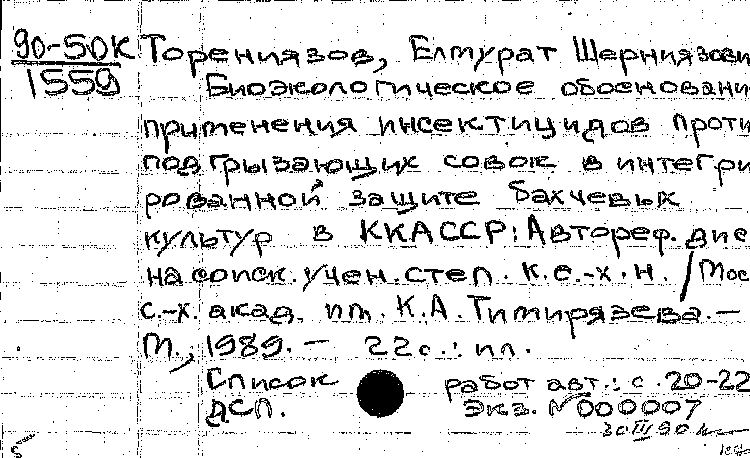 90-50к Торениязов, Елтурат Шерниязови
1559 Биоэкологическое обосновани
применения инсектицидов проти
подгрызающих совок в интегри
рованной защите бахчевых
культур в ККАССР: Автореф. дис
на соиск. учен. степ. к. с.-х. н. / Мос
с.-х. акад. им. К. А. Тимирязева. —
М., 1989. — 22 с.: ил.
Список работ авт.: с. 20-22
ДСП. Экз. № 000007
30 III 90